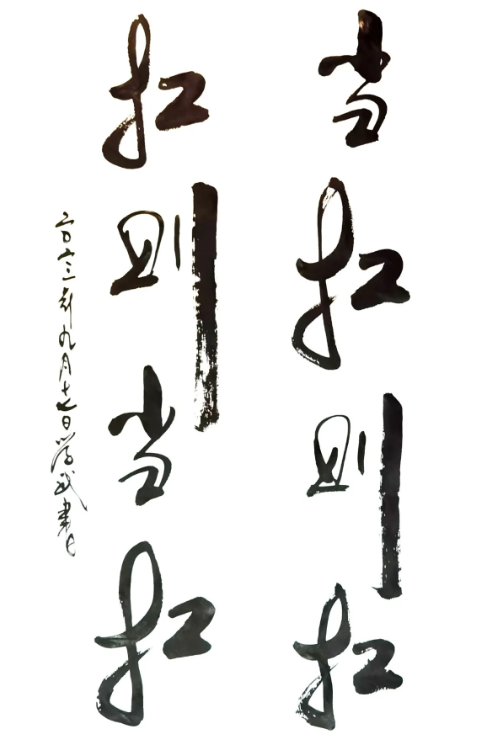 当扛则扛
扛则当扛
二〇二三年九月十七日学武书